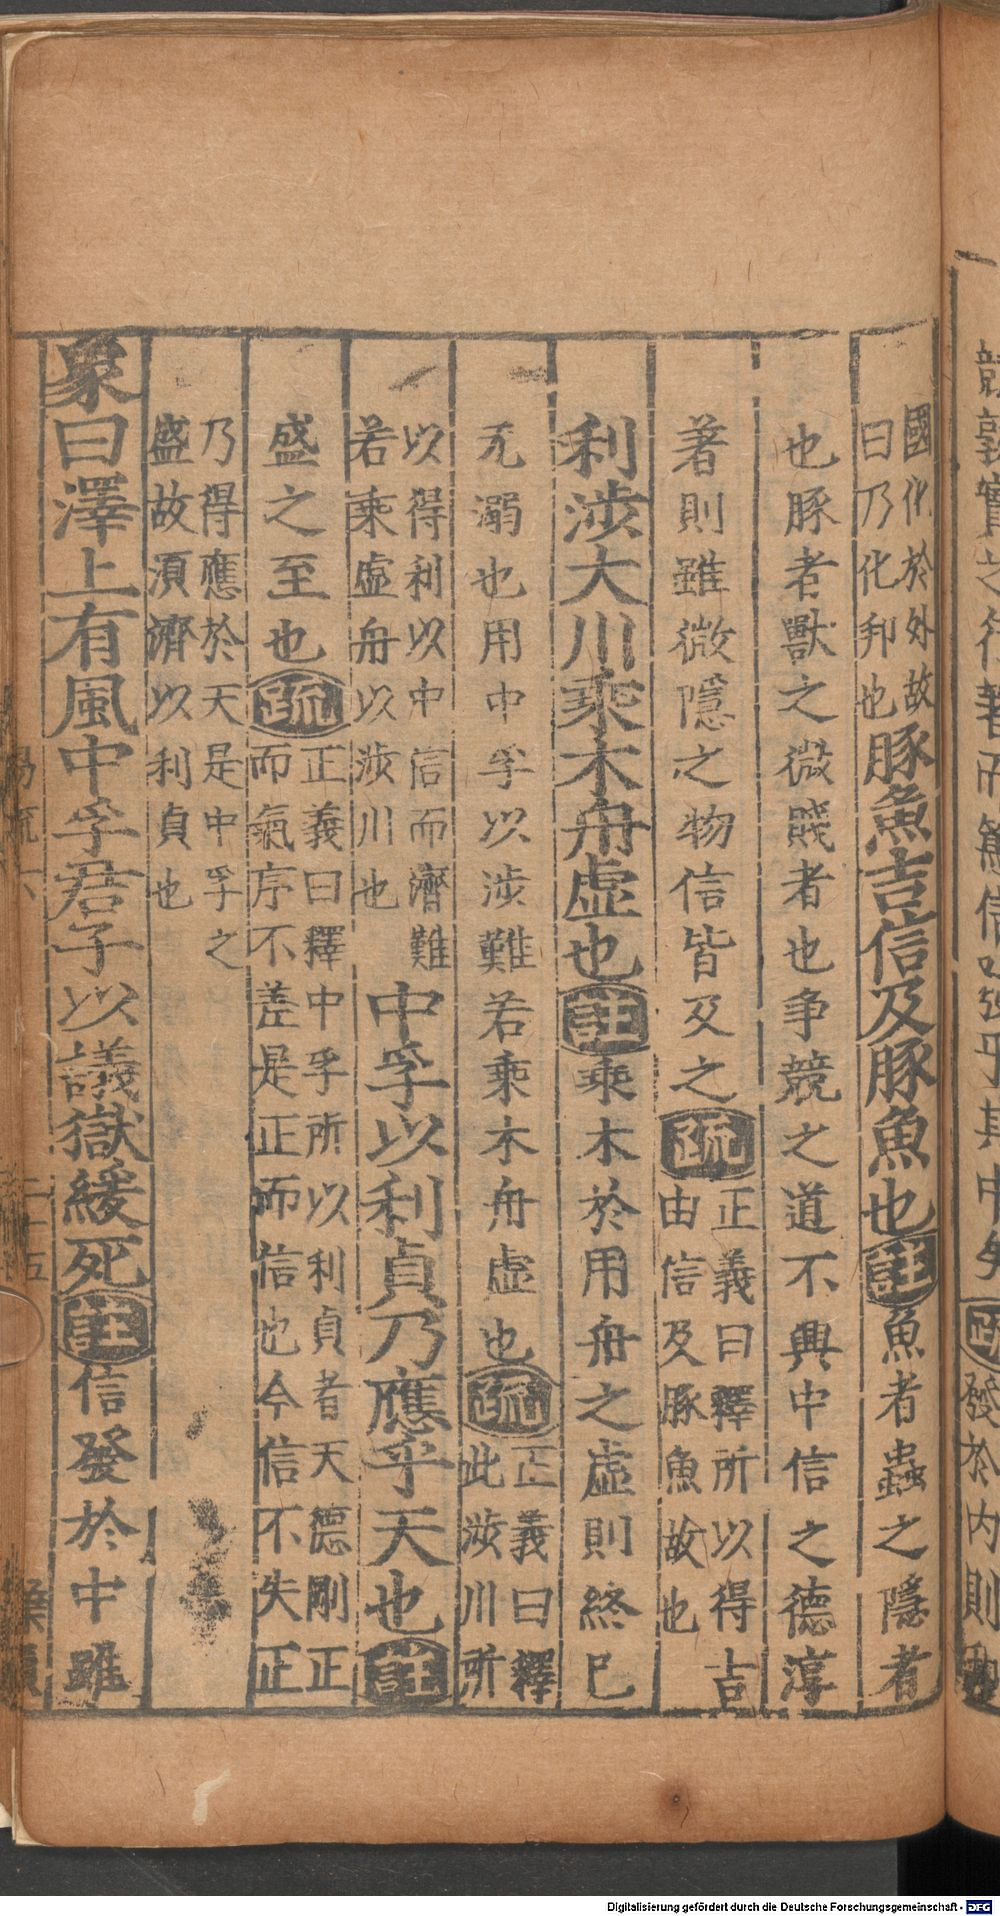 國化於外故
曰乃化邦也
豚魚吉信及豚魚也註魚者蟲之隱者
也豚者獸之微賤者也争競之道不興中信之德淳
著則雖微隱之物信皆及之疏
正義曰釋所以得吉
由信及豚魚故也
利涉大川乘木舟虛也註乘木於用舟之虛則終已
无溺也用中孚以涉難若乘木舟虛也疏
正義曰釋
此涉川所
以得利以中信而濟難
若乘虛舟以涉川也
中孚以利貞乃應乎天也註
盛之至也疏
正義曰釋中孚所以利貞者天德剛正
而氣序不差是正而信也今信不失正
乃得應於天是中孚之
盛故須濟以利貞也
象曰澤上有風中孚君子以議獄緩死註信發於中雖
易疏六
二十五
Digitalisierung gefördert durch die Deutsche Forschungsgemeinschaft - DFG